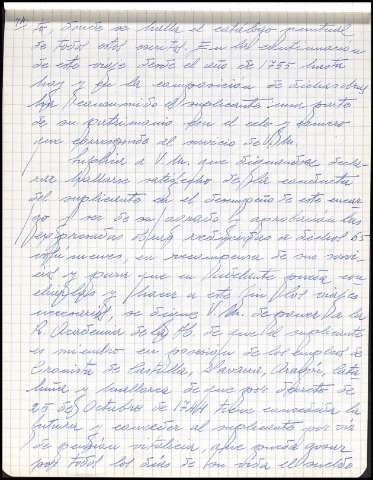 to, donde se halla el catálogo puntual
de todos estos escritos. En la continuacion
de este viaje desde el año de 1755 hasta
hoy y en la composicion de dichas obras
ha consumido el suplicante una parte
de su patrimonio con el celo y esmero
que corresponde al servicio de V.M.
Suplica a V.M. que dignandose decla-
rar hallarse satisfecho de la conducta
del suplicante en el desempeño de este encar-
go y ser de su agrado y aprobacion las
expresadas obras reducidas a dichos 65
volumenes, en recompensa de sus servi-
cios y para que en adelante pueda con
cluirlas y hacer a este fin los viajes
necesarios, se digne V.M. de poner a la
R. Academia de la H.ª de que el suplicante
es miembro en posesion de los empleos de
Cronista de Castilla, Navarra, Aragon, Cata
luña y Mallorca de que por decreto de
25 de Octubre de 1744 tiene concedida la
futura y conceder al suplicante por via
de pension vitalicia, que pueda gozar
por todos los dias de su vida el sueldo